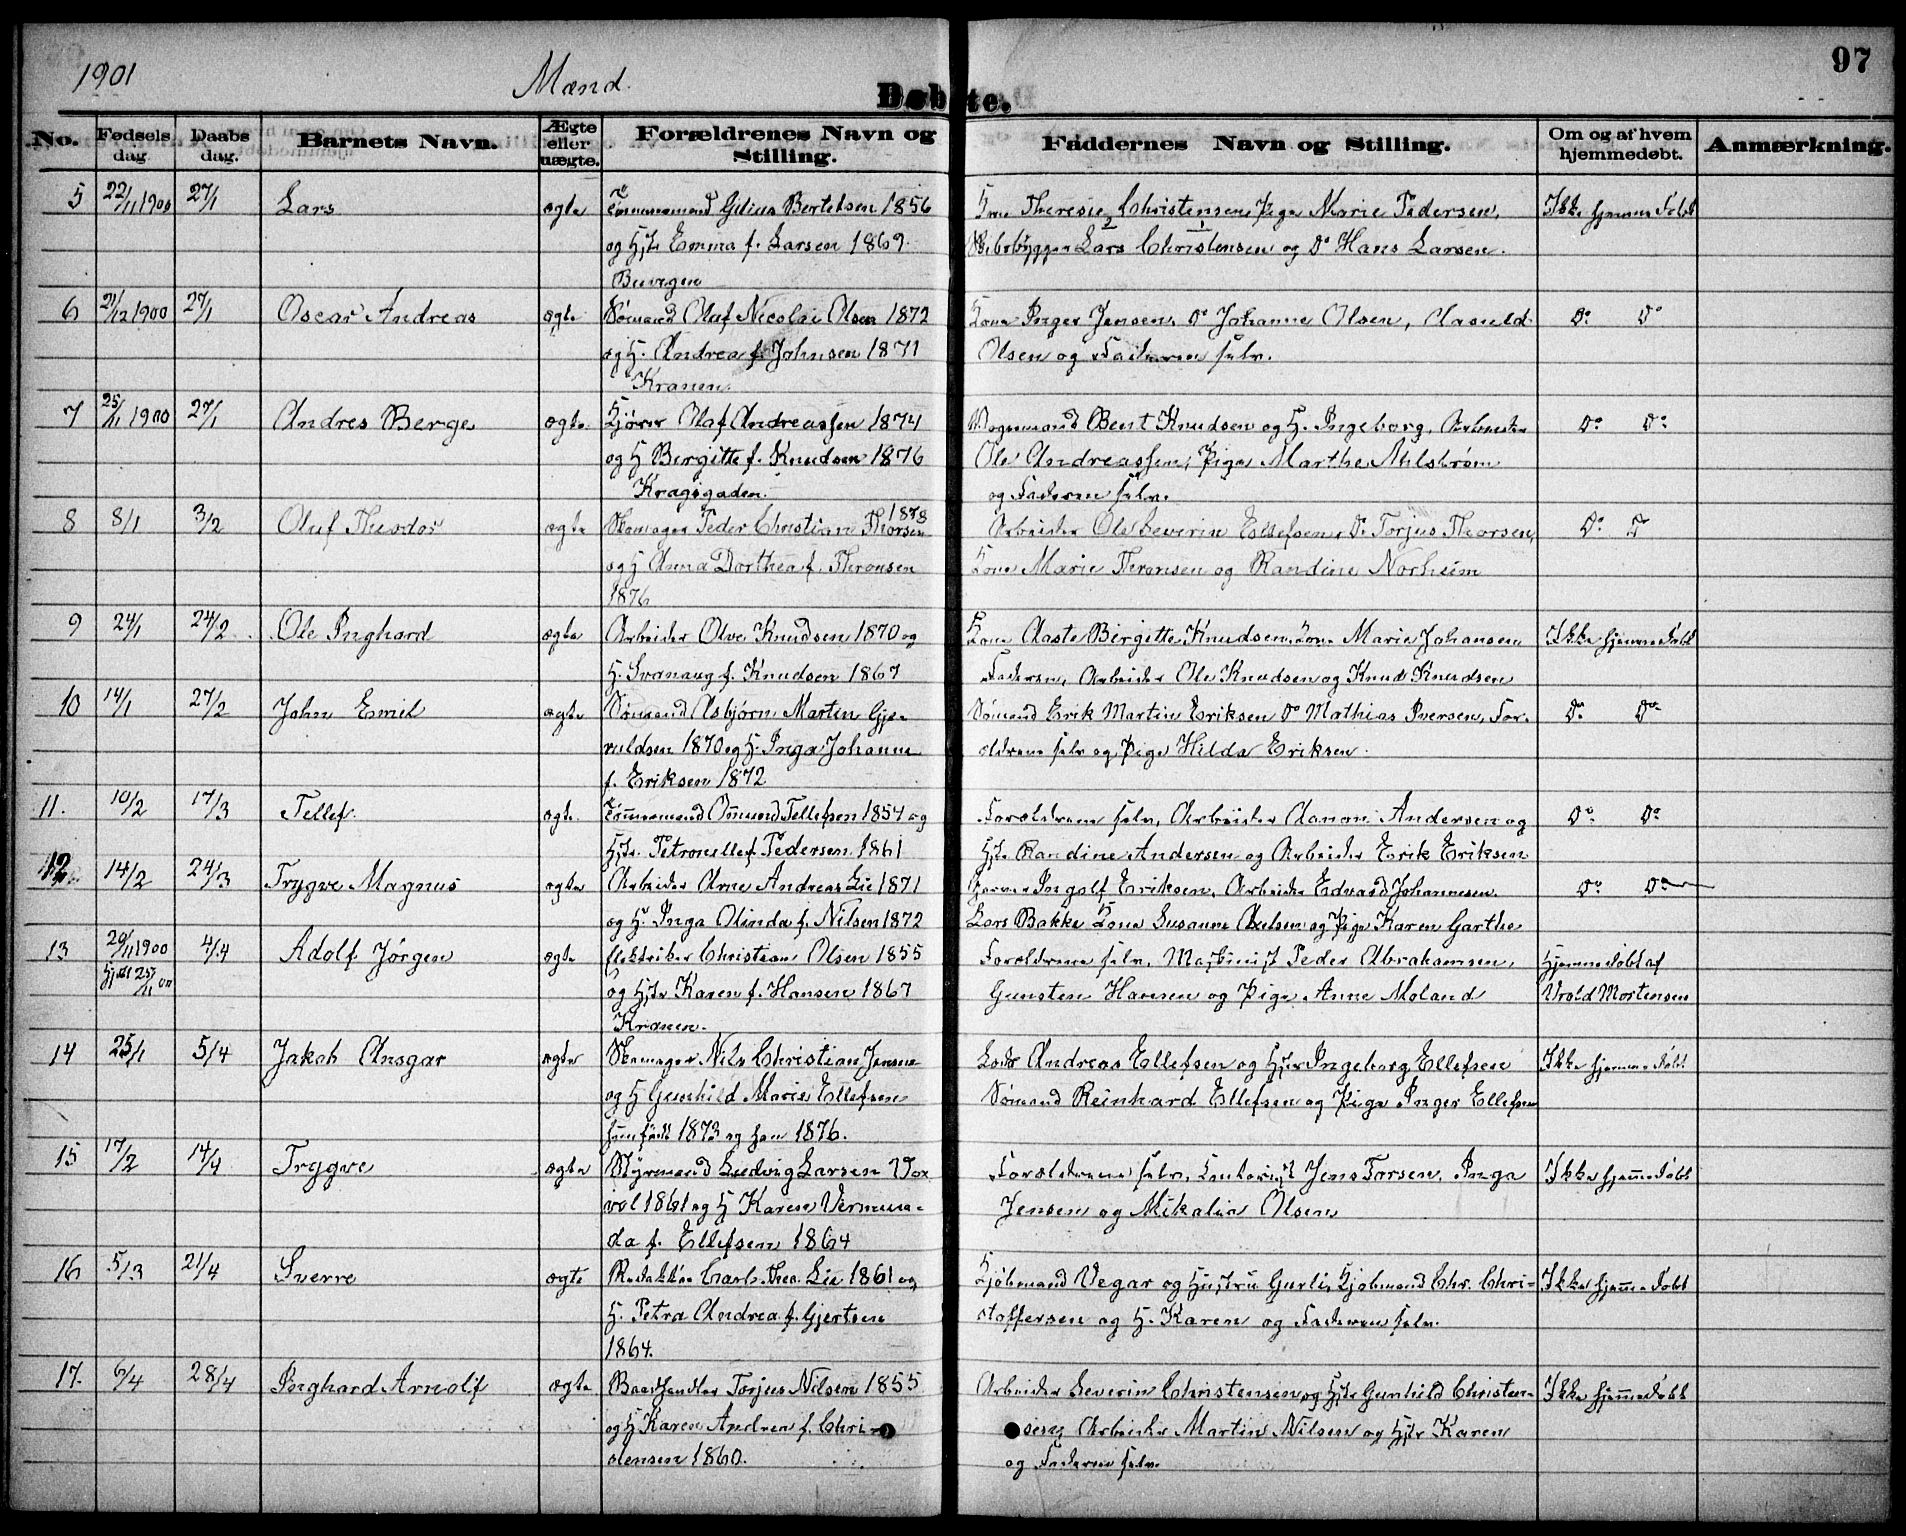 1901 Mænd. 97
Døbte.
No. Fødsels dag. Daabs dag. Barnets Navn. Ægte eller uægte. Forældrenes Navn og Stilling. Faddernes Navn og Stilling. Om og af hvem hjemmedøbt. Anmærkning.
5 22/11 1900 27/1 Lars ægte Tømmermand Gilius Bertelsen 1856 Kone Theresie Christensen, Pige Marie Pedersen, Ikke hjemmedøbt
og Hstr Emma f. Larsen 1869. Lars Christensen og Do Hans Larsen.
Buvegen
6 21/12 1900 27/1 Oscar Andreas ægte Sømand Oluf Nicolai Olsen 1872 Kone Inger Jensen, Do Johanne Olsen, Olsen og Faderen selv. Do Do
og H. Andrea f. Johnsen 1871
Kranen.
7 25/11 1900 27/1 Andres Berge ægte Kjører Olaf Andreassen 1874 Vognmand Bent Knudsen og H. Ingeborg, Arbeider Do Do
og H Bergitte f. Knudsen 1876 Ole Andreassen, Pige Marthe
Kragsgaden. og Faderen selv.
8 8/1 3/2 Oluf Theodor ægte Skomager Peder Christian Thorsen 1878 Arbeider Ole Severin Ellefsen, Do Torjus Thorsen, Do
og H Anna Dorthea f. Thronsen Kone Marie Thronsen og Randine Norheim
1876
9 24/1 24/2 Ole Inghard ægte Arbeider Olve Knudsen 1870 og Kone Aaste Birgitte Knudsen, Kone Marie Johansen, Ikke hjemmedøbt
H. Svanaug f. Knudsen 1867 Faderen, Arbeider Ole Knudsen og Knud Knudsen
10 14/1 27/2 John Emil ægte Sømand Asbjørn Martin Gje- Sømand Erik Martin Eriksen Do Mathias Iversen, For- Do Do
ruldsen 1870 og H. Inga Johanne ældrene selv og Pige Hilda Eriksen.
f. Eriksen 1872
11. 10/2 17/3 Tellef. ægte Tømmermand Omund Tellefsen 1854 og Forældrene selv, Arbeider Aanon Andersen og Do Do
Hstr. Petronelle f. Pedersen 1861 Hstr Randine Andersen og Arbeider Erik Eriksen
12 14/2 24/3 Trygve Magnus ægte Arbeider Arne Andreas Lie 1871 Ingolf Eriksen, Arbeider Edvard Johannesen. Do Do
og H. Inga Olinda f. Nilsen 1872 Lars Bakke Kone Susanne Axelsen og Pige Karen Garthe
13 20/11 1900 4/4 Adolf Jørgen ægte Christian Olsen 1855 Forældrene selv, Maskinist Peder Abrahamsen, Hjemmedøbt af
Hjdt 25/11 00 og Hstr Karen f. Hansen 1867 Gunsten Hansen og Pige Anne Moland Vrold Mortensen
Kranen.
14 25/1 5/4 Jakob Ansgar ægte Skomager Nils Christian Jensen Lods Andreas Ellefsen og Hstr Ingeborg Ellefsen Ikke hjemmedøbt
og H Gunhild Marie Ellefsen Sømand Reinhard Ellefsen og Pige Inger Ellefsen
hun født 1873 og han 1876.
15 17/2 14/4 Trygve ægte Styrmand Ludvig Larsen Forældrene selv, Jens Torsen, Inga Ikke hjemmedøbt
1861 og H Karen Vermun- Jensen og Mikalia Olsen
da f. Ellefsen 1864
16 5/3 21/4 Sverre ægte Redaktør Carl Theo. Lie 1861 og Kjøbmand Vegar og Hustru Gurli, Kjøbmand Chr. Chri- Ikke hjemmedøbt
H. Petra Andrea f. Gjertsen stoffersen og H. Karen og Faderen selv.
1864.
17. 6/4 28/4 Inghard Arnolf ægte Torjus Nilsen 1855 Arbeider Severin Christensen og Hstr Gunhild Christen- Ikke hjemmedøbt
og H Karen Andrea f. Chri- sen, Arbeider Martin Nilsen og Hstr Karen
stensen 1860. og Faderen selv.